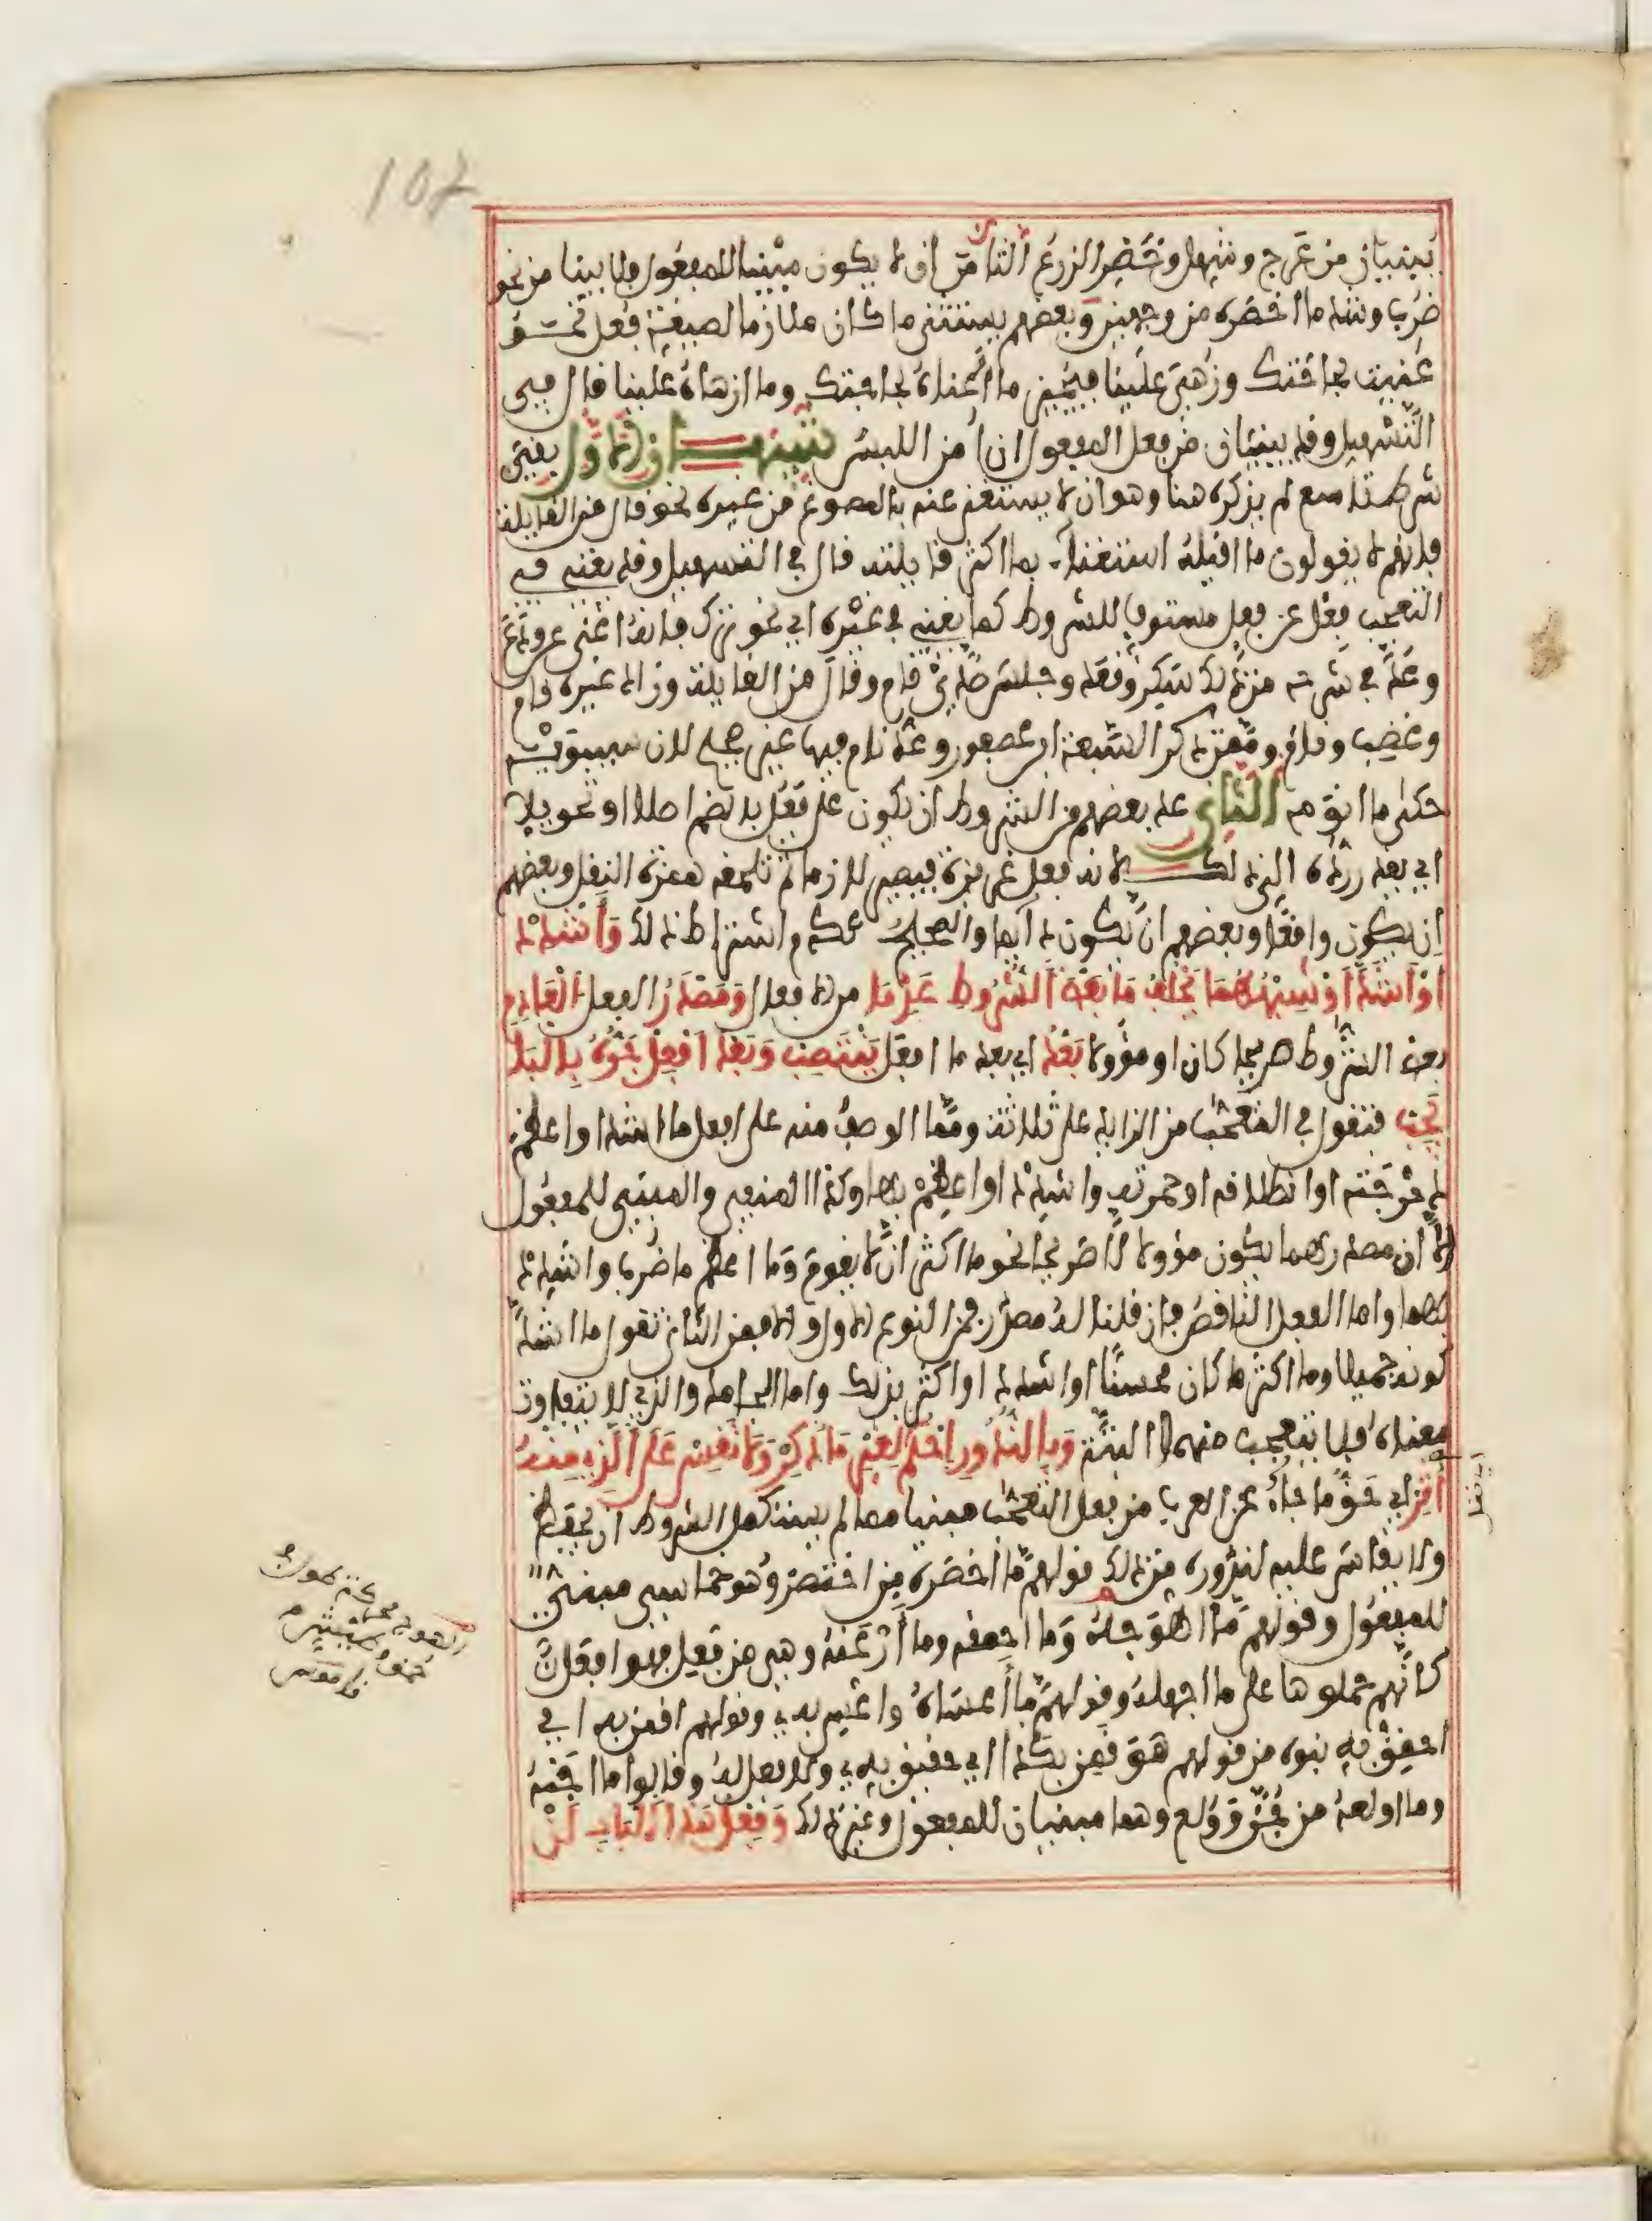 107
يبنيان من عرج وشهل وخضر الزرع الثامن ان لا يكون مبنيا للمفعول فلا يبنا من نحو
ضرب وشذ ما اخصره من وجهين وبعضهم يستثنى ما كان ملازما لصيغة فعل نحو
عنيت بحاجتك وزهى علينا فيجيز ما اعناه بحاجتك وما ازهاه علينا قال في
التسهيل وقد يبنيان من فعل المفعول ان امن اللبس تنبيهان الاول بقى
شرط تاسع لم يذكره هنا وهو ان لا يستغنى عنه بالمصوغ من غيره نحو قال من القايلة
فانهم لا يقولون ما اقيله استغناء بما اكثر قايلته قال في التسهيل وقد يغنى في
التعجب فعل عن فعل مستوف للشروط كما يغنى في غيره اي نحو ترك فانه اغنى عن ودع
وعد في شرحه من ذلك سكر وقعد وجلس ضدي قام وقال من القايلة وزاد غيره قام
وغضب ونام وممن ذكر السبعة ابن عصفور وعد نام فيها غير صحيح لان سيبويه
حكى ما انومه الثاني عد بعضهم من الشروط ان يكون على فعل بالضم اصلا او تحويلا
اي يقدر رده الى ذلك لانه فعل غريزة فيصير لازما ثم تلحقه همزة النقل وبعضهم
ان يكون واقعا وبعضهم ان يكون دايما والصحيح عدم اشتراط ذلك وَأَشْدِدْ
اوْ اشَدَّ اَوْ شِبْهُهُمَا يَخْلُفُ مَا بَعْضَ الشُّرُوطِ عَدِمَا من الافعال وَمَصْدَرُ الفعل الْعَادِمِ
بعض الشروط صريحا كان او مؤولا بَعْدُ اي بعد ما افعل يَنْتَصِبْ وَبَعْدَ افْعِلْ جَرُّهُ بِالبَا
يَجِبْ فتقول في التعجب من الزايد على ثلاثة ومما الوصف منه على افعل ما اشد او اعظم
دحرجته او انطلاقه او حمرته واشدد او اعظم بها وكذا المنفي والمبني للمفعول
الا ان مصدرهما يكون مؤولا لا صريحا نحو ما اكثر ان لا يقوم وما اعظم ما ضرب واشدد
بهما واما الفعل الناقص فان قلنا له مصدر فمن النوع الاول والا فمن الثاني تقول ما اشد
كونه جميلا وما اكثر ما كان محسنا او اشدد او اكثر بذلك واما الجامد والذي لا يتفاوت
معناه فلا يتعجب منهما البتة وَبِالنُّدُورِ احْكُمْ لِغَيْرِ مَا ذُكِرْ وَلا تَقِسْ عَلَى الَّذِي مِنْهُ
أُثِرْ اي حق ما جاء عن العرب من فعل التعجب مبنيا مما لم يستكمل الشروط ان يحفظ
ولا يقاس عليه لندوره من ذلك قولهم ما اخصره من اختصر وهو خماسي مبني
للمفعول وقولهم ما اهوجه وما احمقه وما ارعنه وهي من فعل فهو افعل
كانهم حملوها على ما اجهله وقولهم ما اعساه واعس به وقولهم اقمن به اي
احقق به بنوه من قولهم هو قمن بكذا اي حقيق به ولا فعل له وقالوا ما اجنه
وما اولعه من جن وولع وهما مبنيان للمفعول وغير ذلك وَفِعْلُ هَذَا الْبَابِ لَنْ